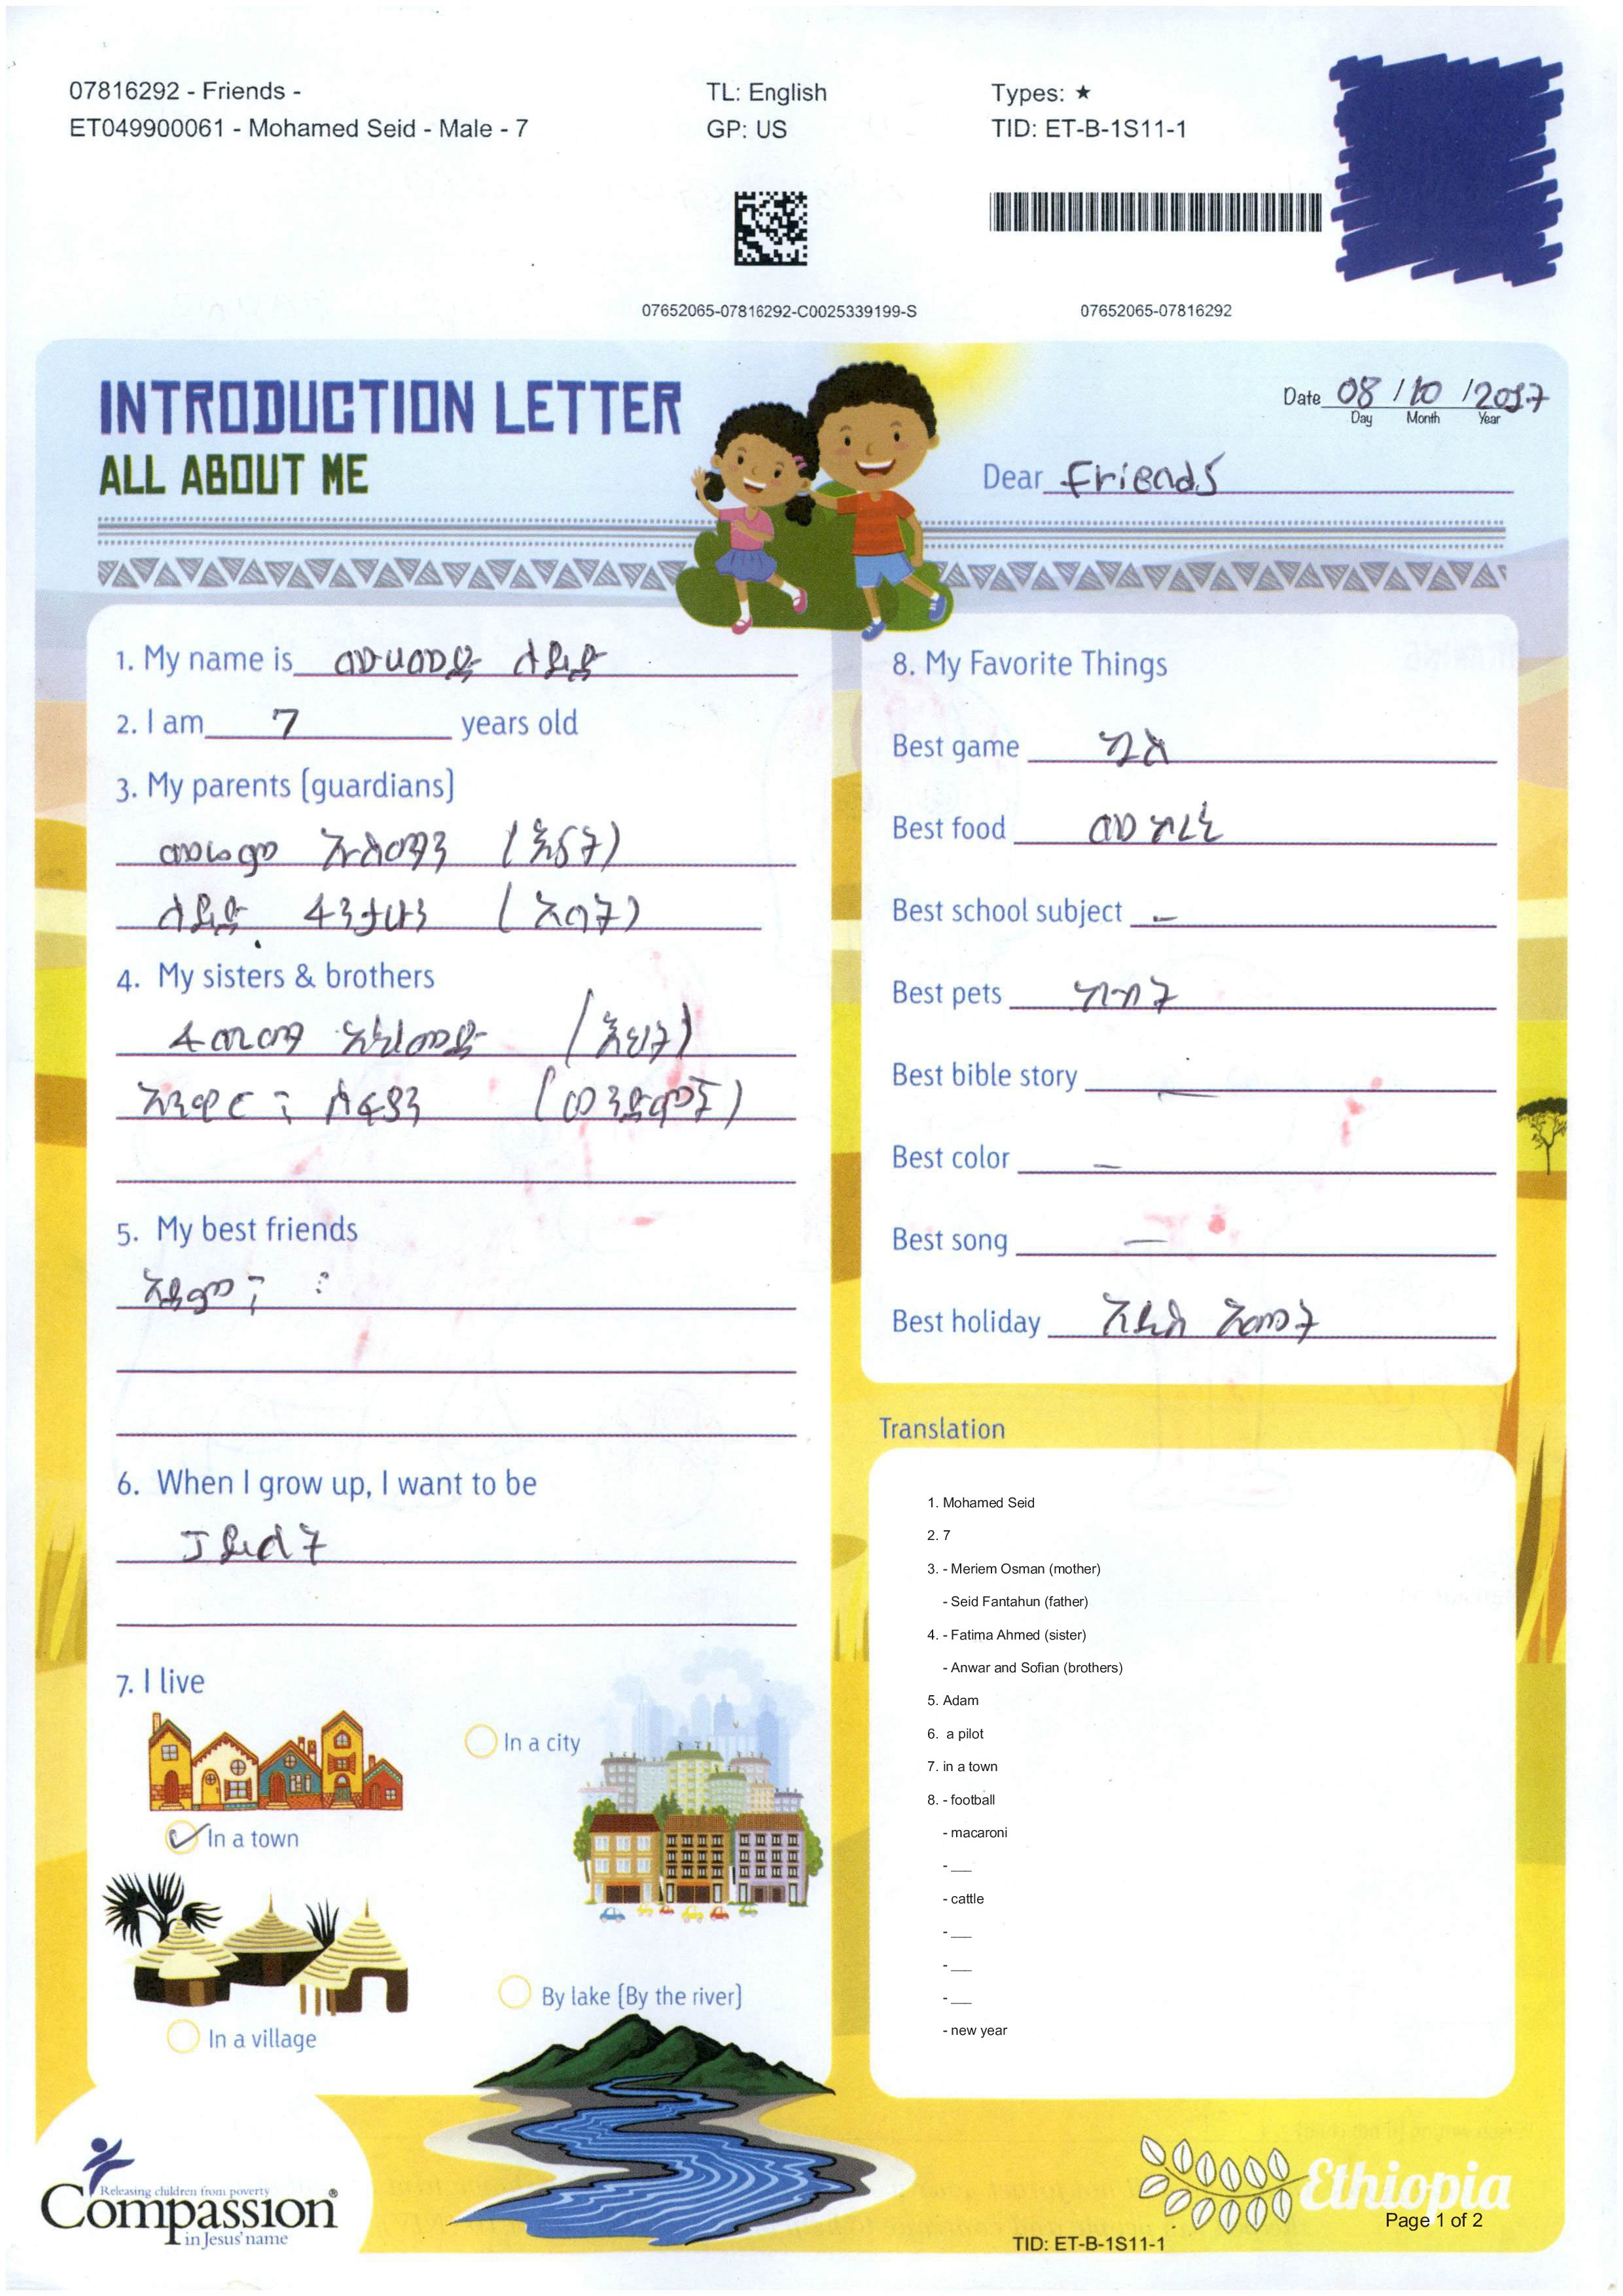 07816292 - Friends -
ET049900061 - Mohamed Seid - Male - 7
TL: English
GP: US
Types: ★
TID: ET-B-1S11-1
07652065-07816292-C0025339199-S
07652065-07816292
INTRODUCTION LETTER
ALL ABOUT ME
Date 08 / 10 / 2017
Day Month Year
Dear Friends
1. My name is መሀመድ ሰይድ
2. I am 7 years old
3. My parents (guardians)
መሬም ኡስማን (እናት)
ሰይድ ፋንታሁን (አባት)
4. My sisters & brothers
ፋጡማ አህመድ (እህት)
አንዋር ፣ ሱፍያን (ወንድሞች)
5. My best friends
አዳም ፣
6. When I grow up, I want to be
ፓይለት
7. I live
In a town
In a city
In a village
By lake (By the river)
8. My Favorite Things
Best game ኳስ
Best food መኮረኒ
Best school subject -
Best pets ከብት
Best bible story -
Best color -
Best song -
Best holiday አዲስ አመት
Translation
1. Mohamed Seid
2. 7
3. - Meriem Osman (mother)
- Seid Fantahun (father)
4. - Fatima Ahmed (sister)
- Anwar and Sofian (brothers)
5. Adam
6. a pilot
7. in a town
8. - football
- macaroni
- __
- cattle
- __
- __
- __
- new year
Releasing children from poverty
Compassion®
in Jesus' name
Ethiopia
Page 1 of 2
TID: ET-B-1S11-1